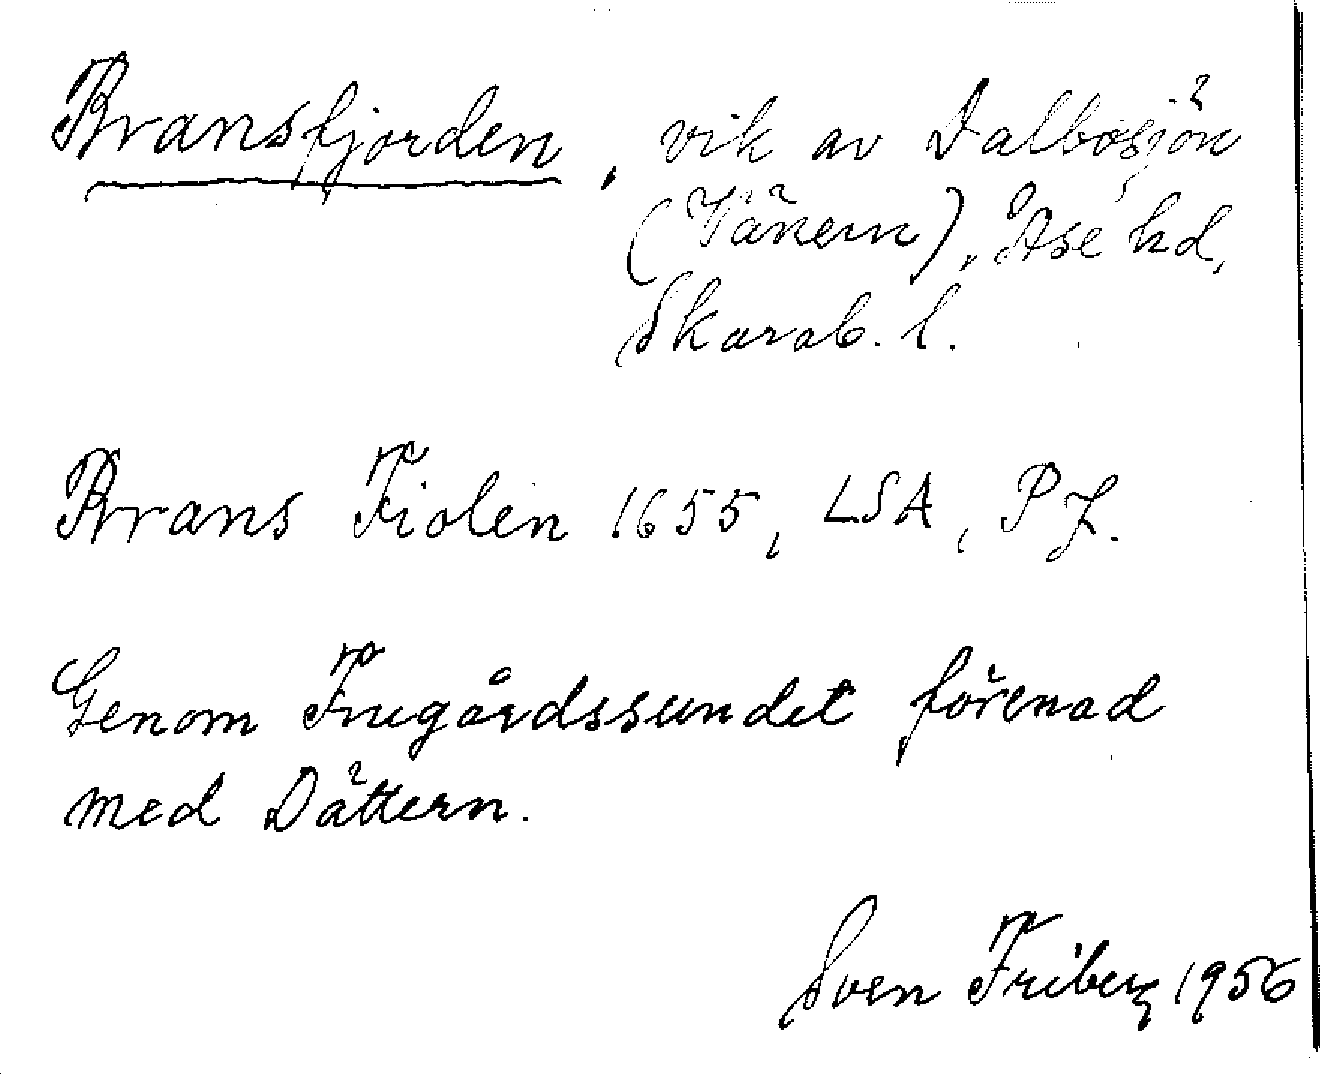 Bransfjorden, vik av Dalbosjön
(Vänern), Åse hd,
Skarab. l.
Brans Fiolen 1655, LSA, P J.
Genom Frugårdssundet förenad
med Dättern.
Sven Friberg 1956